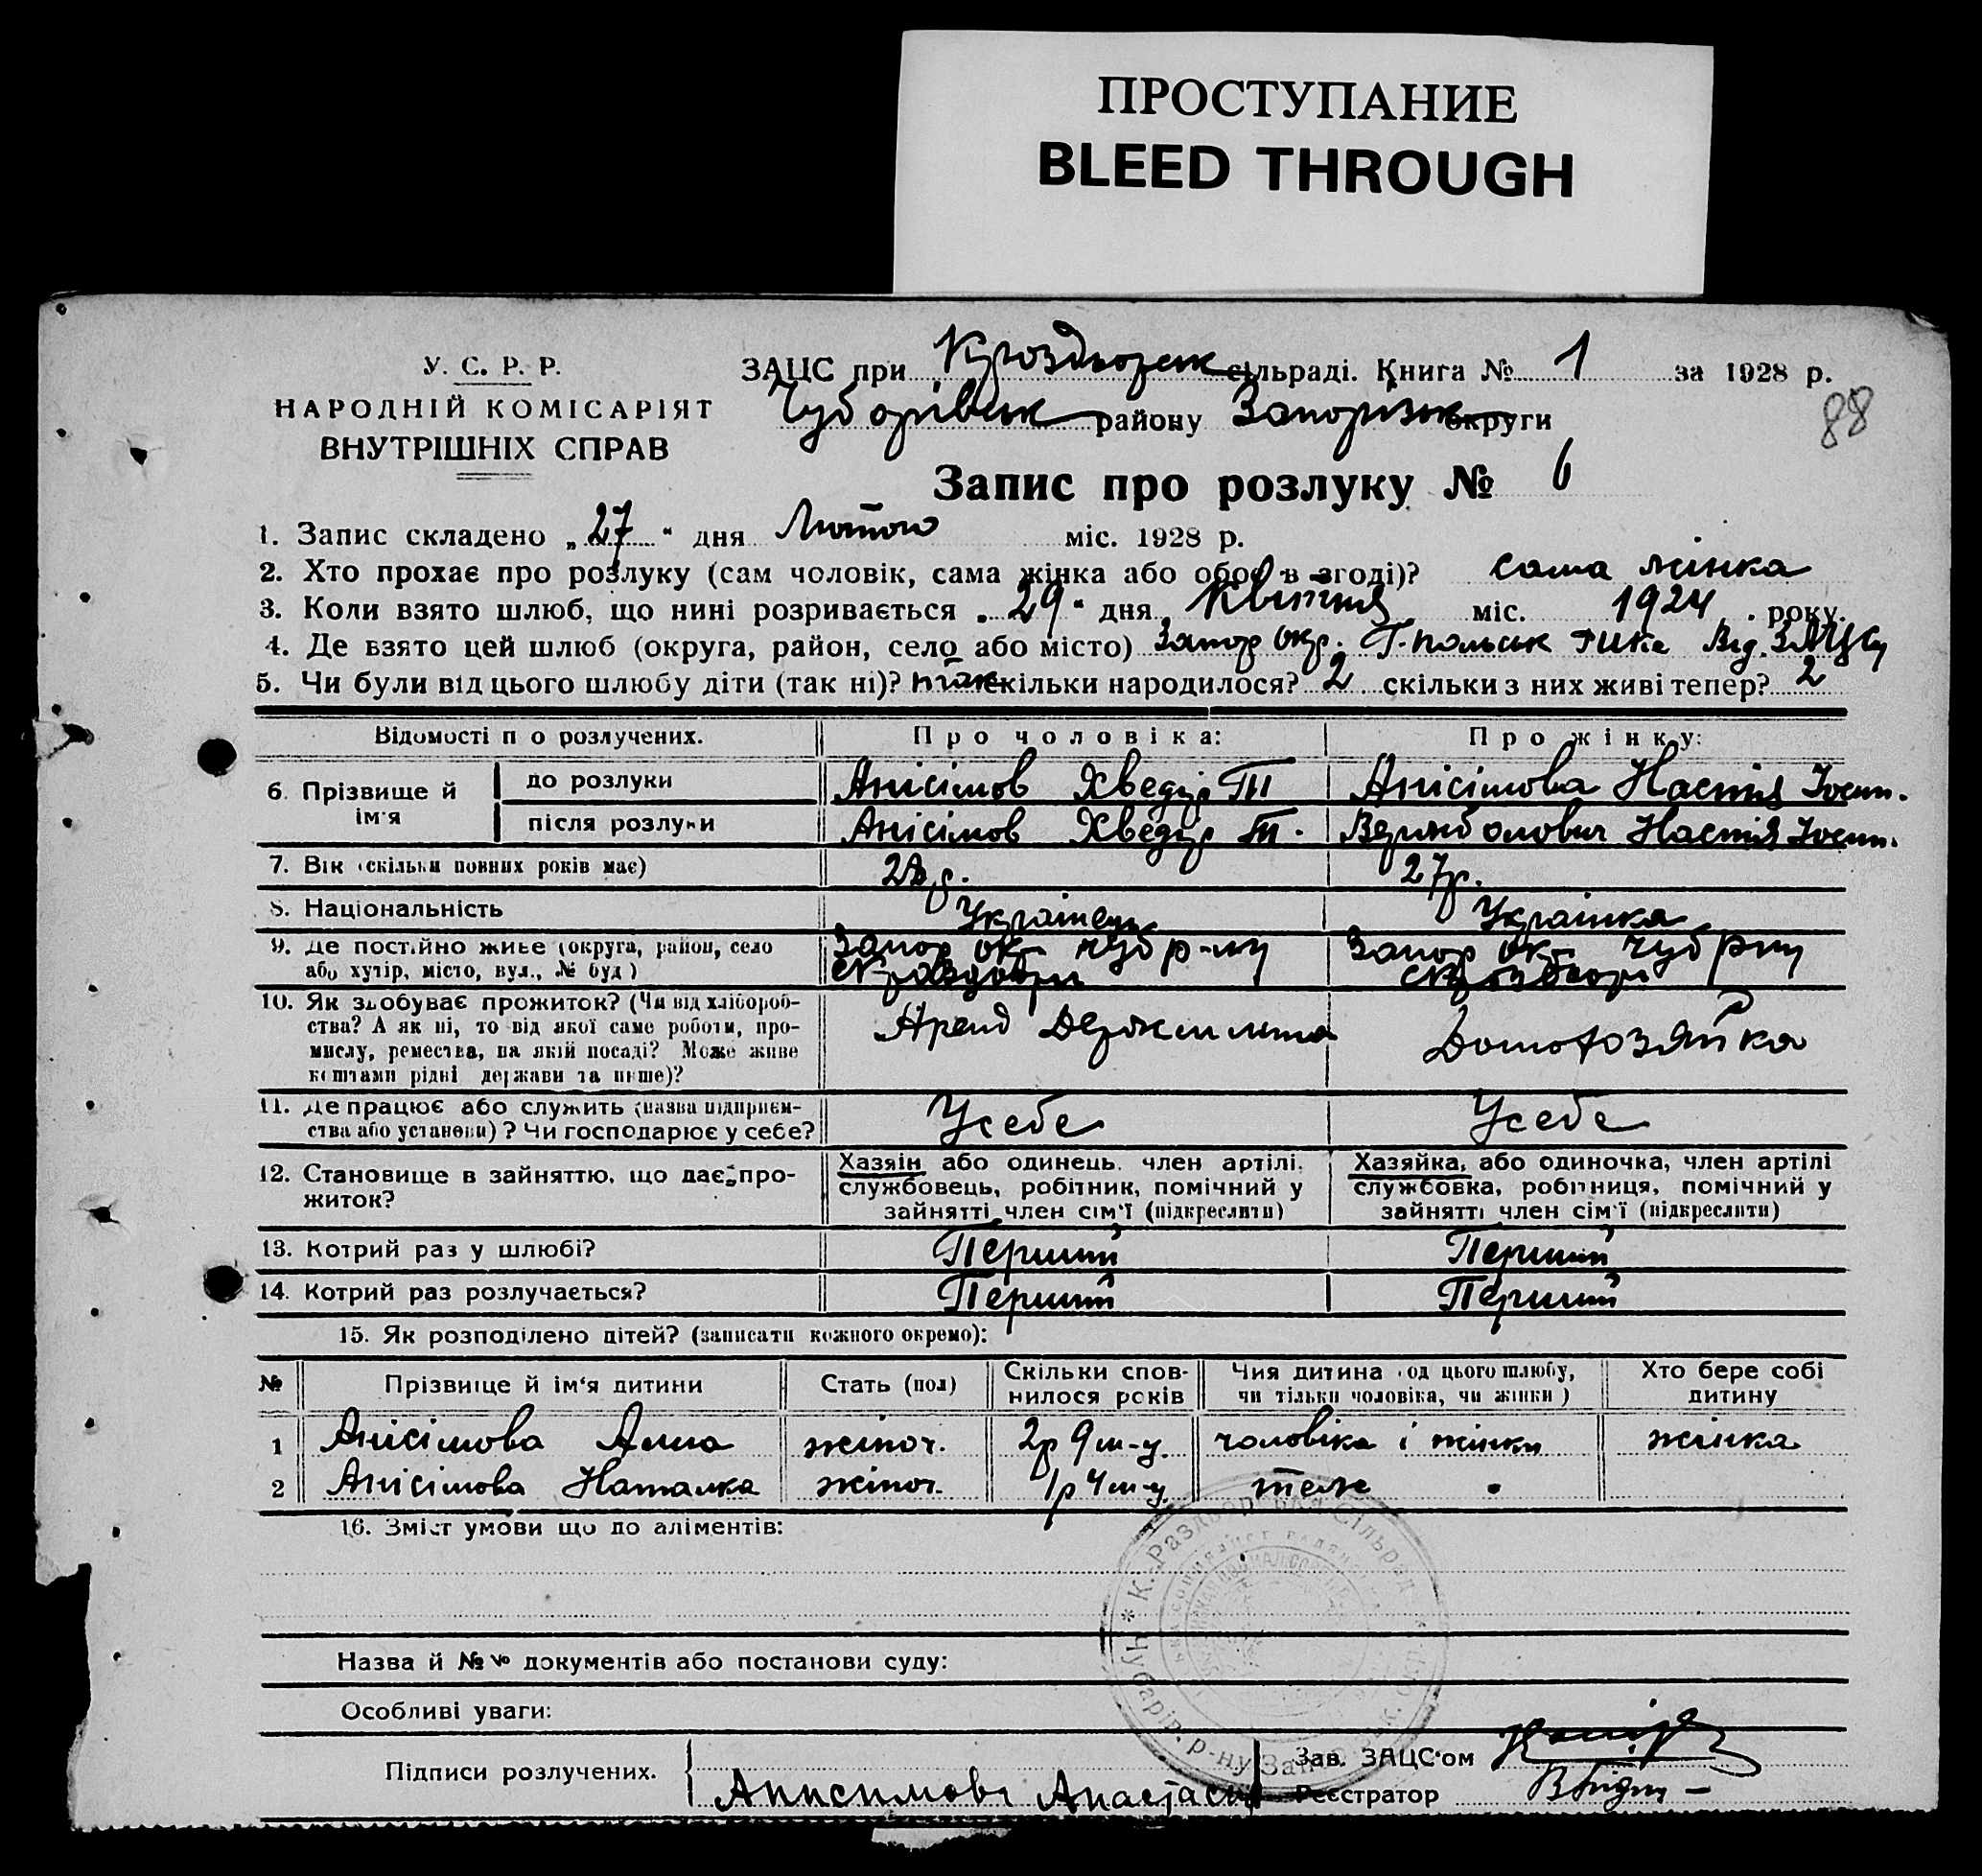 ПРОСТУПАНИЕ
BLEED THROUGH
У. С. Р. Р.
НАРОДНІЙ КОМІСАРІЯТ
ВНУТРІШНІХ СПРАВ
ЗАЦС при сільраді. Книга № 1 за 1928 р.
району Запорізьк округи
88
Запис про розлуку № 6
1. Запис складено „27“ дня Лютого міс. 1928 р.
2. Хто прохає про розлуку (сам чоловік, сама жінка або обоє в згоді)? сама жінка
3. Коли взято шлюб, що нині розривається „29“ дня Квітня міс. 1924 року.
4. Де взято цей шлюб (округа, район, село або місто) Запор окр. Г-польськ
5. Чи були від цього шлюбу діти (так ні)? так скільки народилося? 2 скільки з них живі тепер? 2
Відомості п о розлучених. Про чоловіка: Про жінку:
6. Прізвище й ім'я до розлуки Анісімов Хведір Ти Анісімова Настя Іосип.
після розлуки Анісімов Хведір Ти. Настя Іосип.
7. Вік (скільки повних років має) 28 р. 27 р.
8. Національність Українец Українка
9. Де постійно живе (округа, район, село Запор окр Чуб р-ну Запор окр Чуб р-ну
або хутір, місто, вул., № буд)
10. Як здобуває прожиток? (Чи від хлібороб-
ства? А як ні, то від якої саме роботи, про-
мислу, ремества, на якій посаді? Може живе
коштами рідні держави та інше)? Домохозяйка
11. Де працює або служить (назва підприєм-
ства або установи)? Чи господарює у себе? Усебе Усебе
12. Становище в зайняттю, що дає про-
житок?
Хазяїн або одинець, член артілі,
службовець, робітник, помічний у
зайнятті член сім'ї (підкреслити)
Хазяйка, або одиночка, член артілі
службовка, робітниця, помічний у
зайнятті член сім'ї (підкреслити)
13. Котрий раз у шлюбі? Перший Перший
14. Котрий раз розлучається? Перший Перший
15. Як розподілено дітей? (записати кожного окремо):
№ Прізвище й ім'я дитини Стать (пол) Скільки спов-
нилося років Чия дитина (од цього шлюбу,
чи тільки чоловіка, чи жінки) Хто бере собі
дитину
1 Анісімова Анна жіноч. 2р 9 м-ц. чоловіка і жінки жінка
2 Анісімова Наталка жіноч. 1р 4 м-ц. теж "
16. Зміст умови що до аліментів:
Назва й №№ документів або постанови суду:
Особливі уваги:
Підписи розлучених.
Зав. ЗАЦС'ом
Реєстратор